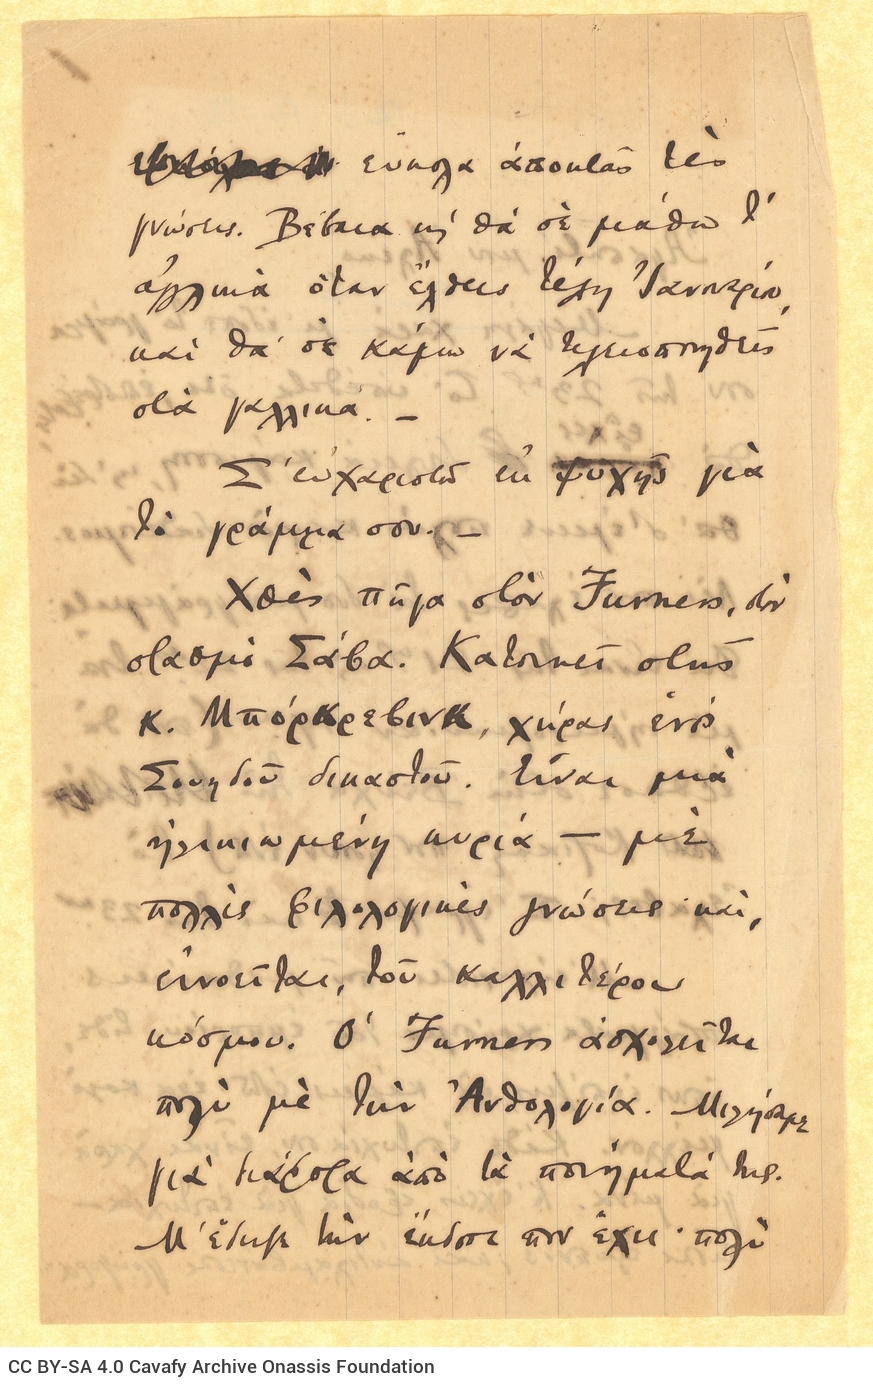 εὔκολα ἀποκτᾶς τὲς
γνώσεις. Βέβαια κι' θὰ σὲ μιάθω τ'
ἀγγλικὰ ὅταν ἔλθεις τέλη Ἰανουαρίου,
καὶ θὰ σὲ κάμω νὰ τελειοποιηθεῖς
στὰ γαλλικά. —
Σ' εὐχαριστῶ ἐκ ψυχῆς γιὰ
τὸ γράμμα σου. —
Χθὲς πῆγα στὸν Furness, στὸν
σταθμὸ Σάβα. Κατοικεῖ στῆς
κ. Μπόρκρεβινκ, χήρας ἑνὸς
Σουηδοῦ δικαστοῦ. Εἶναι μιὰ
ἡλικιωμένη κυρία — μὲ
πολλὲς φιλολογικὲς γνώσεις· καὶ,
ἐννοεῖται, τοῦ καλλιτέρου
κόσμου. Ὁ Furness ἀσχολεῖται
πολὺ μὲ τὴν Ἀνθολογία. Μιλήσαμε
γιὰ διάφορα ἀπὸ τὰ ποιήματά της.
Μ' ἔδειξε τὴν ἔκδοσι που ἔχει· πολὺ
CC BY-SA 4.0 Cavafy Archive Onassis Foundation